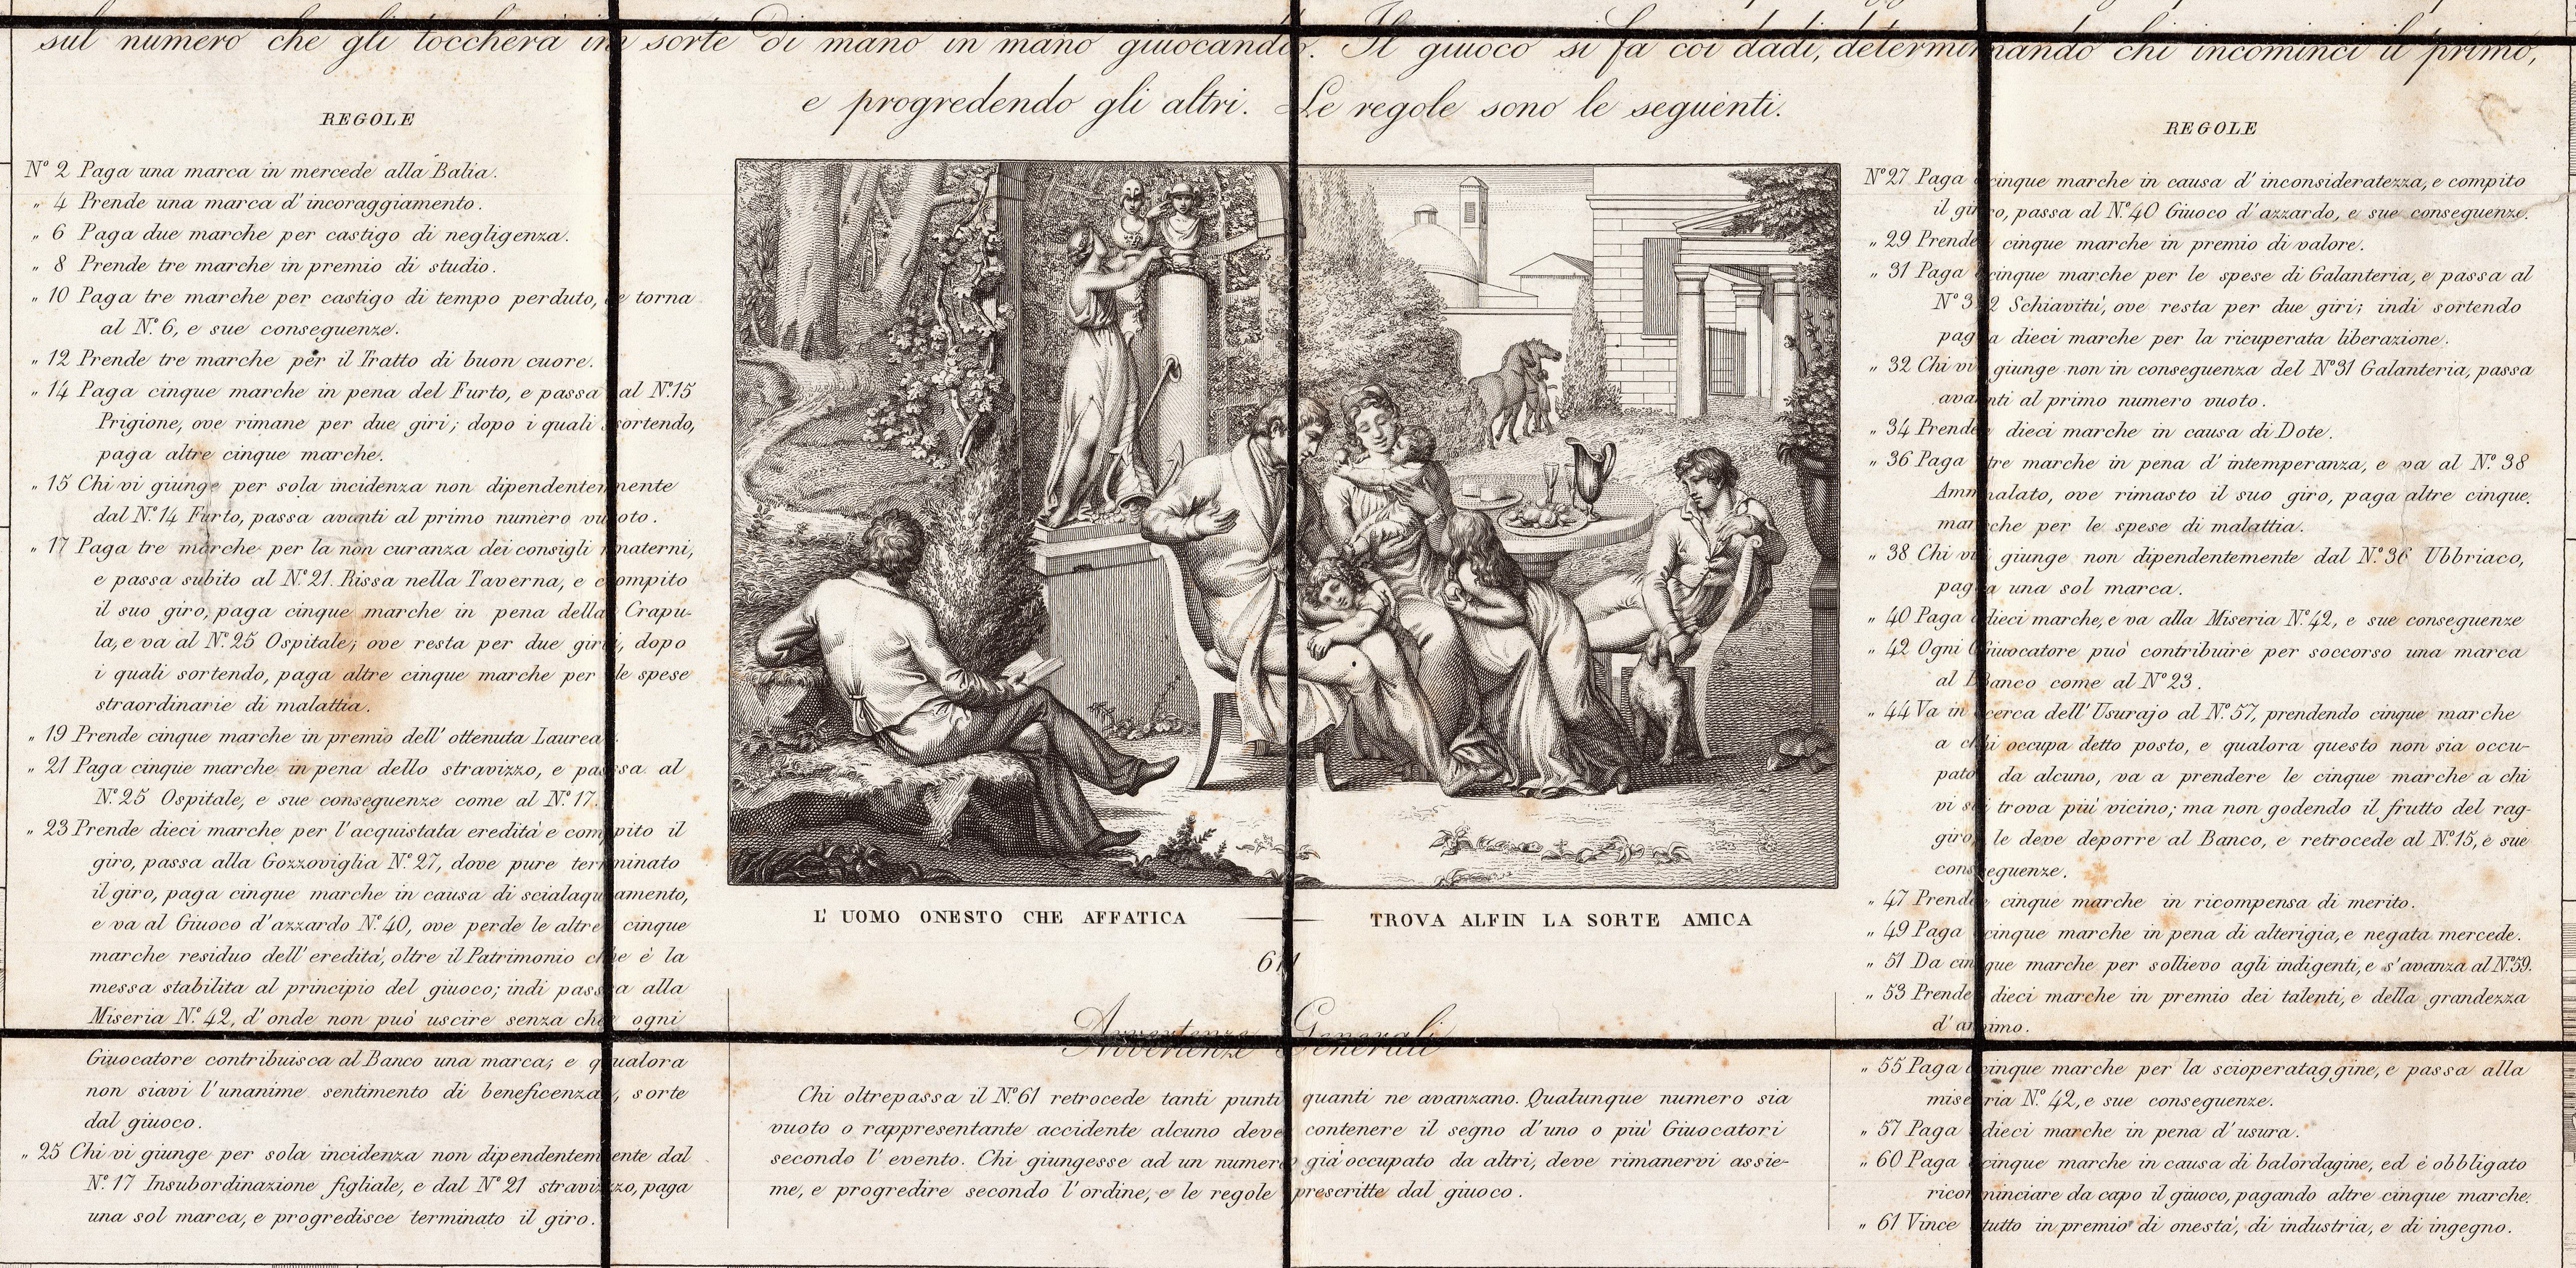 sul numero che gli toccherà in sorte di mano in mano giuocando. Il giuoco si fa coi dadi, determinando chi incominci il primo,
e progredendo gli altri. Le regole sono le seguenti.
REGOLE
Nº 2 Paga una marca in mercede alla Balia.
„ 4 Prende una marca d'incoraggiamento.
„ 6 Paga due marche per castigo di negligenza.
„ 8 Prende tre marche in premio di studio.
„ 10 Paga tre marche per castigo di tempo perduto, e torna
al Nº 6, e sue conseguenze.
„ 12 Prende tre marche per il Tratto di buon cuore.
„ 14 Paga cinque marche in pena del Furto, e passa al Nº 15
Prigione, ove rimane per due giri; dopo i quali sortendo,
paga altre cinque marche.
„ 15 Chi vi giunge per sola incidenza non dipendentemente
dal Nº 14 Furto, passa avanti al primo numero vuoto.
„ 17 Paga tre marche per la non curanza dei consigli materni,
e passa subito al Nº 21. Rissa nella Taverna, e compito
il suo giro, paga cinque marche in pena della Crapu-
la, e va al Nº 25 Ospitale; ove resta per due giri, dopo
i quali sortendo, paga altre cinque marche per le spese
straordinarie di malattia.
„ 19 Prende cinque marche in premio dell'ottenuta Laurea.
„ 21 Paga cinque marche in pena dello stravizzo, e passa al
Nº 25 Ospitale, e sue conseguenze come al Nº 17.
„ 23 Prende dieci marche per l'acquistata eredità e compito il
giro, passa alla Gozzoviglia Nº 27, dove pure terminato
il giro, paga cinque marche in causa di scialaquamento,
e va al Giuoco d'azzardo Nº 40, ove perde le altre cinque
marche residuo dell'eredità, oltre il Patrimonio che è la
messa stabilita al principio del giuoco; indi passa alla
Miseria Nº 42, d'onde non può uscire senza che ogni
Giuocatore contribuisca al Banco una marca; e qualora
non siavi l'unanime sentimento di beneficenza, sorte
dal giuoco.
„ 25 Chi vi giunge per sola incidenza non dipendentemente dal
Nº 17 Insubordinazione figliale, e dal Nº 21 stravizzo, paga
una sol marca, e progredisce terminato il giro.
L'UOMO ONESTO CHE AFFATICA — TROVA ALFIN LA SORTE AMICA
61
Avvertenze Generali
Chi oltrepassa il Nº 61 retrocede tanti punti quanti ne avanzano. Qualunque numero sia
vuoto o rappresentante accidente alcuno deve contenere il segno d'uno o più Giuocatori
secondo l'evento. Chi giungesse ad un numero già occupato da altri, deve rimanervi assie-
me, e progredire secondo l'ordine, e le regole prescritte dal giuoco.
REGOLE
Nº 27 Paga cinque marche in causa d'inconsideratezza, e compito
il giro, passa al Nº 40 Giuoco d'azzardo, e sue conseguenze.
„ 29 Prende cinque marche in premio di valore.
„ 31 Paga cinque marche per le spese di Galanteria, e passa al
Nº 32 Schiavitù, ove resta per due giri; indi sortendo
paga dieci marche per la ricuperata liberazione.
„ 32 Chi vi giunge non in conseguenza del Nº 31 Galanteria, passa
avanti al primo numero vuoto.
„ 34 Prende dieci marche in causa di Dote.
„ 36 Paga tre marche in pena d'intemperanza, e va al Nº 38
Ammalato, ove rimasto il suo giro, paga altre cinque
marche per le spese di malattia.
„ 38 Chi vi giunge non dipendentemente dal Nº 36 Ubbriaco,
paga una sol marca.
„ 40 Paga dieci marche, e va alla Miseria Nº 42, e sue conseguenze
„ 42 Ogni Giuocatore può contribuire per soccorso una marca
al Banco come al Nº 23.
„ 44 Va in cerca dell'Usurajo al Nº 57, prendendo cinque marche
a chi occupa detto posto, e qualora questo non sia occu-
pato da alcuno, va a prendere le cinque marche a chi
vi si trova più vicino; ma non godendo il frutto del rag-
giro, le deve deporre al Banco, e retrocede al Nº 15, e sue
conseguenze.
„ 47 Prende cinque marche in ricompensa di merito.
„ 49 Paga cinque marche in pena di alterigia, e negata mercede.
„ 51 Da cinque marche per sollievo agli indigenti, e s'avanza al Nº 59.
„ 53 Prende dieci marche in premio dei talenti, e della grandezza
d'animo.
„ 55 Paga cinque marche per la scioperataggine, e passa alla
miseria Nº 42, e sue conseguenze.
„ 57 Paga dieci marche in pena d'usura.
„ 60 Paga cinque marche in causa di balordagine, ed è obbligato
ricominciare da capo il giuoco, pagando altre cinque marche.
„ 61 Vince tutto in premio di onestà, di industria, e di ingegno.